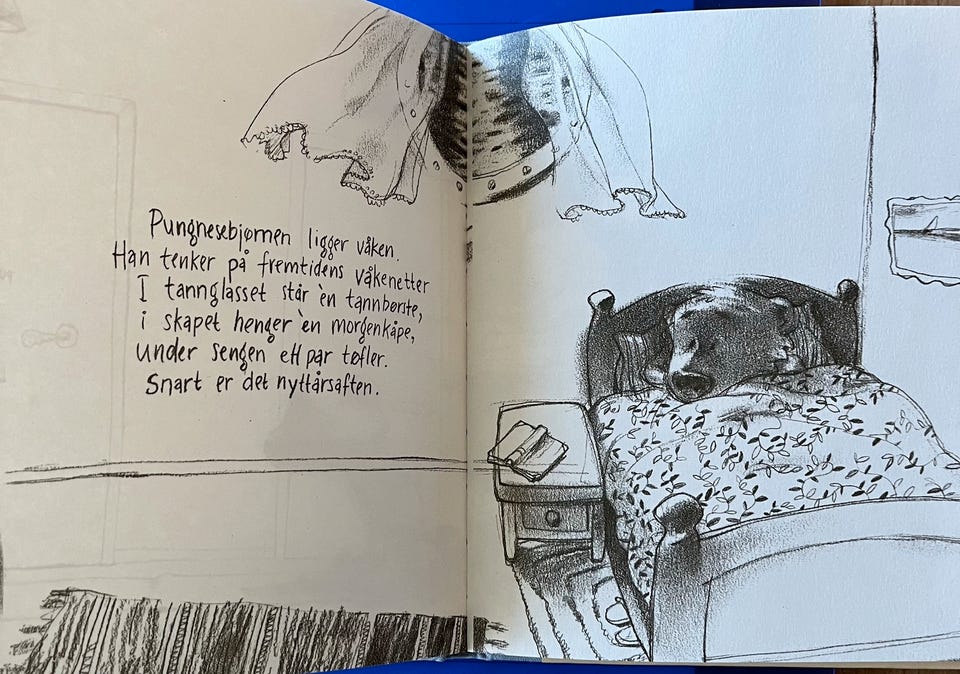 Pungnesebjørnen ligger våken.
Han tenker på fremtidens våkenetter
I tannglasset står èn tannbørste,
i skapet henger èn morgenkåpe,
under sengen ett par tøfler.
Snart er det nyttårsaften.